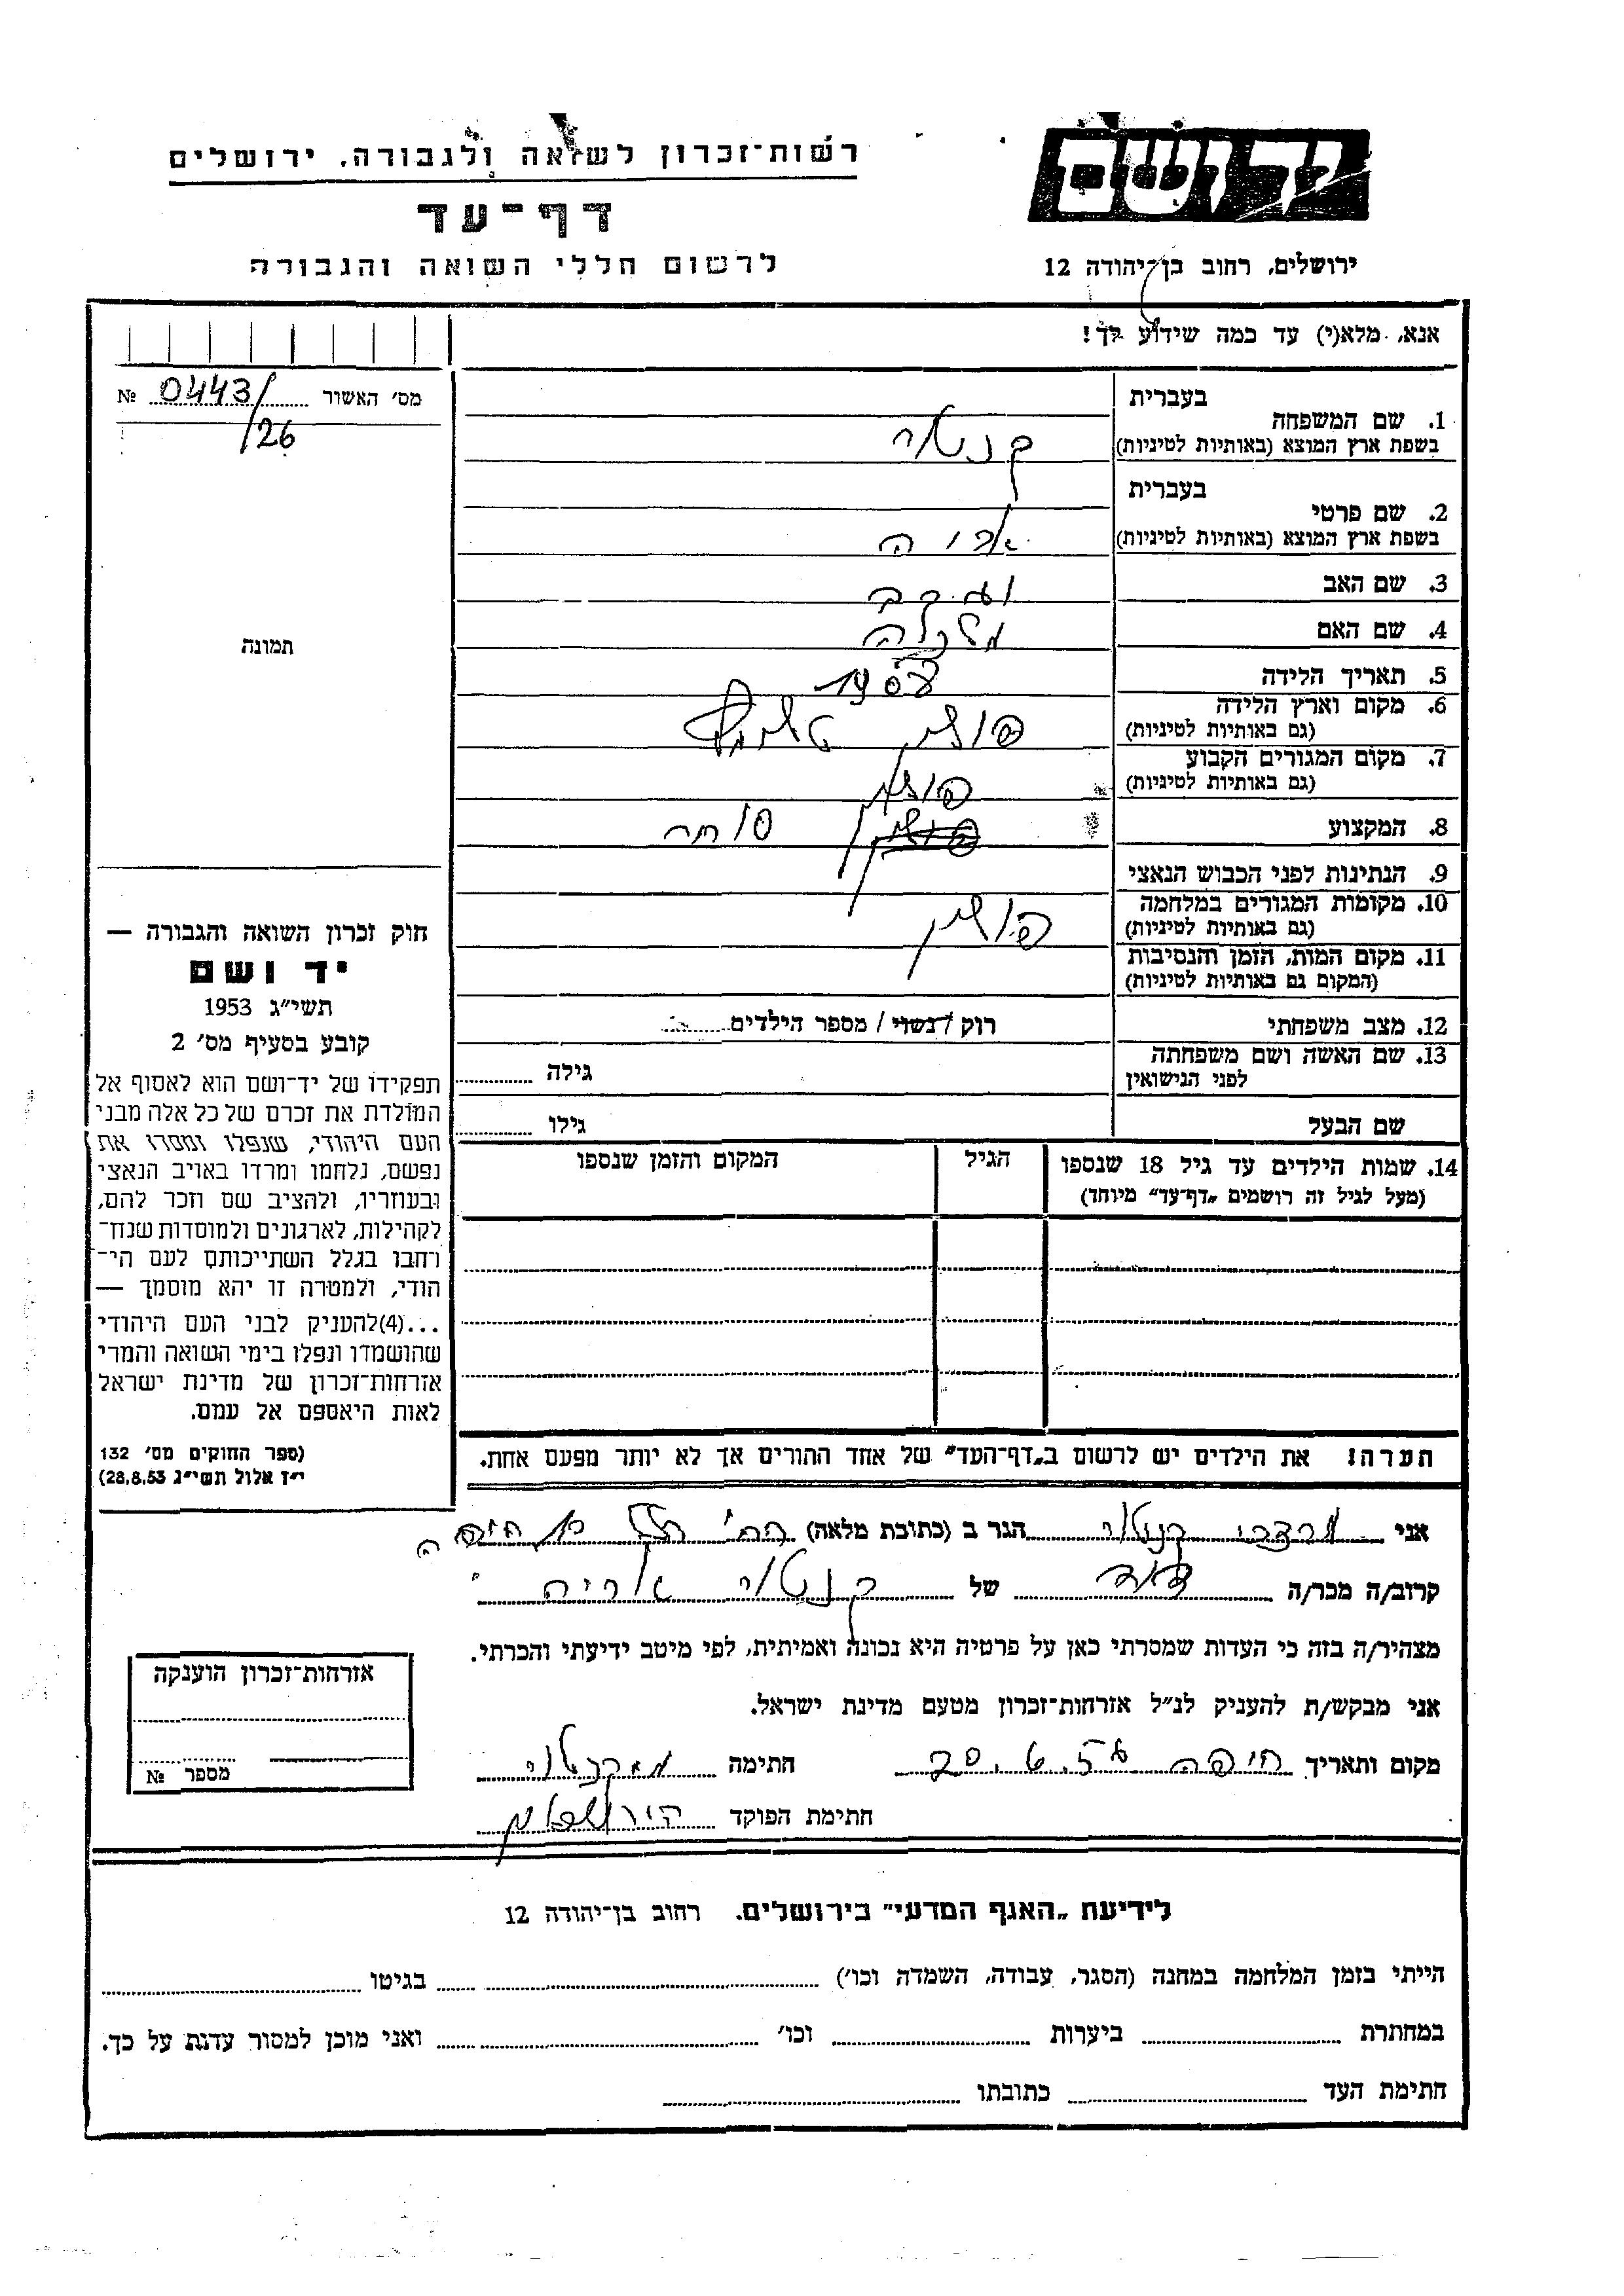 יד ושם
רשות־זכרון לשואה ולגבורה, ירושלים
דף־עד
לרשום חללי השואה והגבורה
ירושלים, רחוב בן־יהודה 12
אנא, מלא(י) עד כמה שידוע לך!
מס׳ האשור № 0443/
/26
בעברית
1. שם המשפחה
בשפת ארץ המוצא (באותיות לטיניות) קנטור
בעברית
2. שם פרטי
בשפת ארץ המוצא (באותיות לטיניות) אריה
3. שם האב יעקב
4. שם האם מלכה
5. תאריך הלידה
6. מקום וארץ הלידה
(גם באותיות לטיניות) פולין
7. מקום המגורים הקבוע
(גם באותיות לטיניות) פולין
8. המקצוע סוחר
9. הנתינות לפני הכבוש הנאצי
10. מקומות המגורים במלחמה
(גם באותיות לטיניות) פולין
11. מקום המות, הזמן והנסיבות
(המקום גם באותיות לטיניות)
12. מצב משפחתי רוק / נשוי / מספר הילדים
13. שם האשה ושם משפחתה
לפני הנישואין גילה
שם הבעל גילו
14. שמות הילדים עד גיל 18 שנספו הגיל המקום והזמן שנספו
(מעל לגיל זה רושמים „דף־עד״ מיוחד)
הערה: את הילדים יש לרשום ב„דף־העד״ של אחד ההורים אך לא יותר מפעם אחת.
תמונה
חוק זכרון השואה והגבורה —
יד ושם
תשי״ג 1953
קובע בסעיף מס׳ 2
תפקידו של יד־ושם הוא לאסוף אל
המולדת את זכרם של כל אלה מבני
העם היהודי, שנפלו ומסרו את
נפשם, נלחמו ומרדו באויב הנאצי
ובעוזריו, ולהציב שם וזכר להם,
לקהילות, לארגונים ולמוסדות שנח־
רחבו בגלל השתייכותם לעם הי־
הודי, ולמטרה זו יהא מוסמך —
...(4)להעניק לבני העם היהודי
שהושמדו ונפלו בימי השואה והמרי
אזרחות־זכרון של מדינת ישראל
לאות היאספם אל עמם.
(ספר החוקים מס׳ 132
י״ז אלול תשי״ג 28.8.53)
אני מרדכי קנטור הגר ב (כתובת מלאה)
קרוב/ה מכר/ה של קנטור אריה
מצהיר/ה בזה כי העדות שמסרתי כאן על פרטיה היא נכונה ואמיתית, לפי מיטב ידיעתי והכרתי.
אני מבקש/ת להעניק לנ״ל אזרחות־זכרון מטעם מדינת ישראל.
מקום ותאריך חיפה חתימה
חתימת הפוקד
אזרחות־זכרון הוענקה
מספר №
לידיעת „האגף המדעי״ בירושלים. רחוב בן־יהודה 12
הייתי בזמן המלחמה במחנה (הסגר, עבודה, השמדה וכו׳) בגיטו
במחתרת ביערות וכו׳ ואני מוכן למסור עדות על כך.
חתימת העד כתובתו